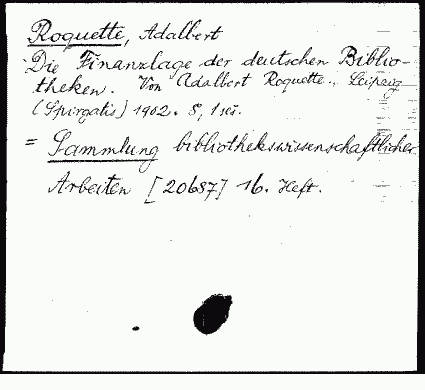 Roquette, Adalbert
Die Finanzlage der deutschen Biblio-
theken. Von Adalbert Roquette. Leipzig
(Spirgatis) 1902. 8,
= Sammlung bibliothekswissenschaftlicher
Arbeiten [20687] 16. Heft.